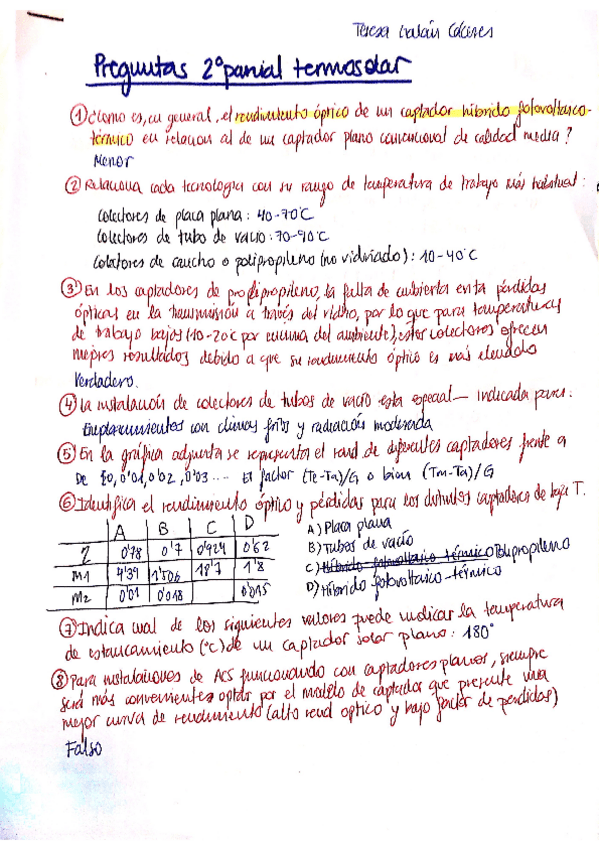 Teresa Galán Cáceres
Preguntas 2º parcial termosolar
① ¿Cómo es, en general, el rendimiento óptico de un captador híbrido fotovoltaico-
térmico en relación al de un captador plano convencional de calidad media?
Menor
② Relaciona cada tecnología con su rango de temperatura de trabajo más habitual:
Colectores de placa plana: 40-70°C
Colectores de tubo de vacío: 70-90°C
Colectores de caucho o polipropileno (no vidriado): 10-40°C
③ En los captadores de propilipropileno, la falta de cubierta evita pérdidas
ópticas en la transmisión a través del vidrio, por lo que para temperaturas
de trabajo bajos (10-20°C por encima del ambiente), estos colectores ofrecen
mejores resultados debido a que su rendimiento óptico es más elevado
Verdadero.
④ La instalación de colectores de tubos de vacío esta especial— indicada para:
Emplazamientos con climas fríos y radiación moderada
⑤ En la gráfica adjunta se representa el rend de diferentes captadores frente a
De {0, 0'01, 0'02, 0'03 ... El factor (Te-Ta)/G o bien (Tm-Ta)/G
⑥ Identifica el rendimiento óptico y pérdidas para los distintos captadores de baja T.
A B C D
η 0'78 0'7 0'924 0'62
M1 4'39 1'506 18'7 1'8
M2 0'01 0'018 0'015
A) Placa plana
B) Tubos de vacío
C) Híbrido fotovoltaico térmico Polipropileno
D) Híbrido fotovoltaico-térmico
⑦ Indica cual de los siguientes valores puede indicar la temperatura
de estancamiento (°C) de un captador solar plano: 180°
⑧ Para instalaciones de ACS funcionando con captadores planos, siempre
será más conveniente optar por el modelo de captador que presente una
mejor curva de rendimiento (alto rend optico y bajo factor de perdidas)
Falso